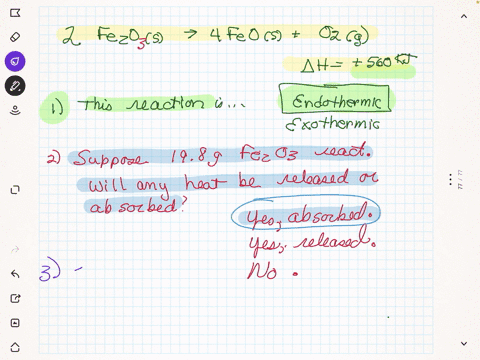 2 Fe2O3(s) → 4 FeO(s) + O2(g)
ΔH = +560 KJ
1) This reaction is...
Endothermic
Exothermic
2) Suppose 19.8g Fe2O3 react.
Will any heat be released or
absorbed?
Yes, absorbed.
Yes, released.
No.
3)